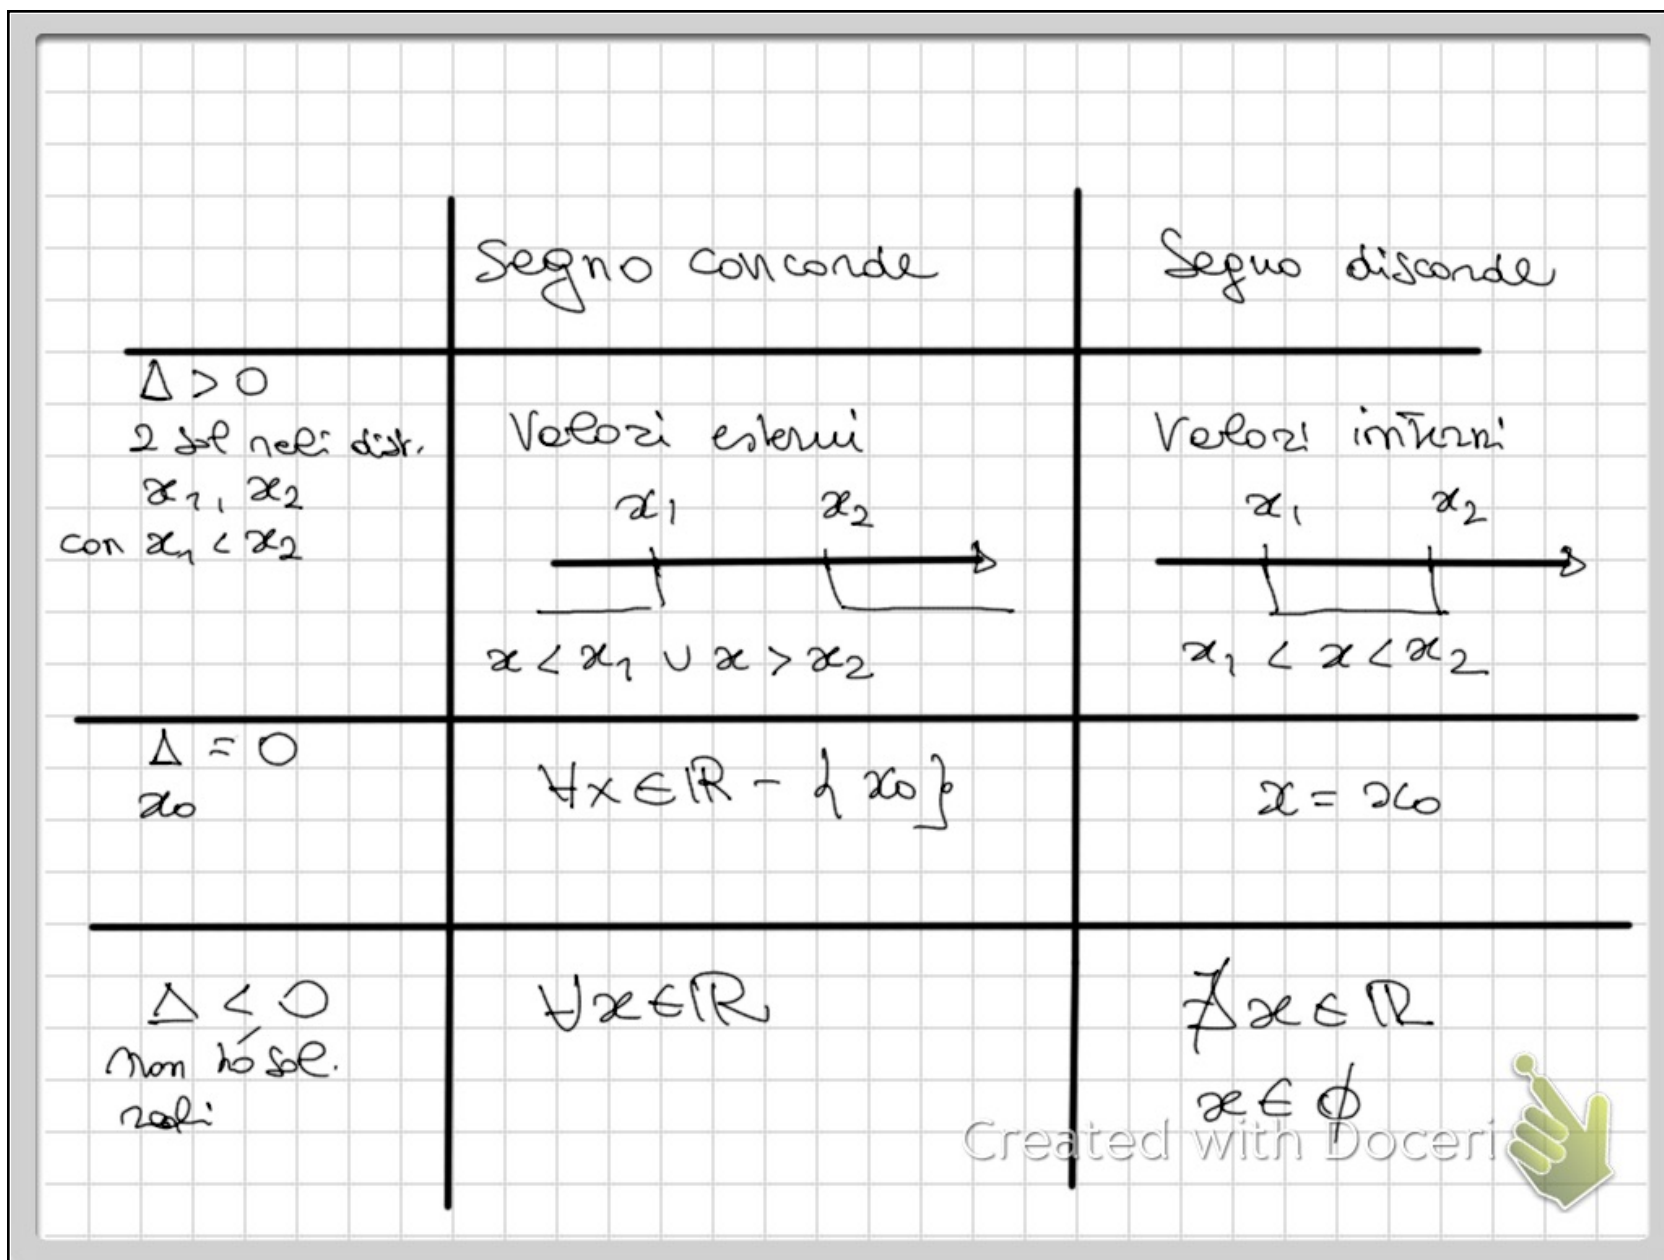 Segno concorde
Segno discorde
Δ > 0
2 sol reali dist.
x₁, x₂
con x₁ < x₂
Valori esterni
x₁ x₂
x < x₁ ∪ x > x₂
Valori interni
x₁ x₂
x₁ < x < x₂
Δ = 0
x₀
∀x ∈ ℝ - {x₀}
x = x₀
Δ < 0
non hó sol.
reali
∀x ∈ ℝ
∄ x ∈ ℝ
x ∈ ϕ
Created with Doceri